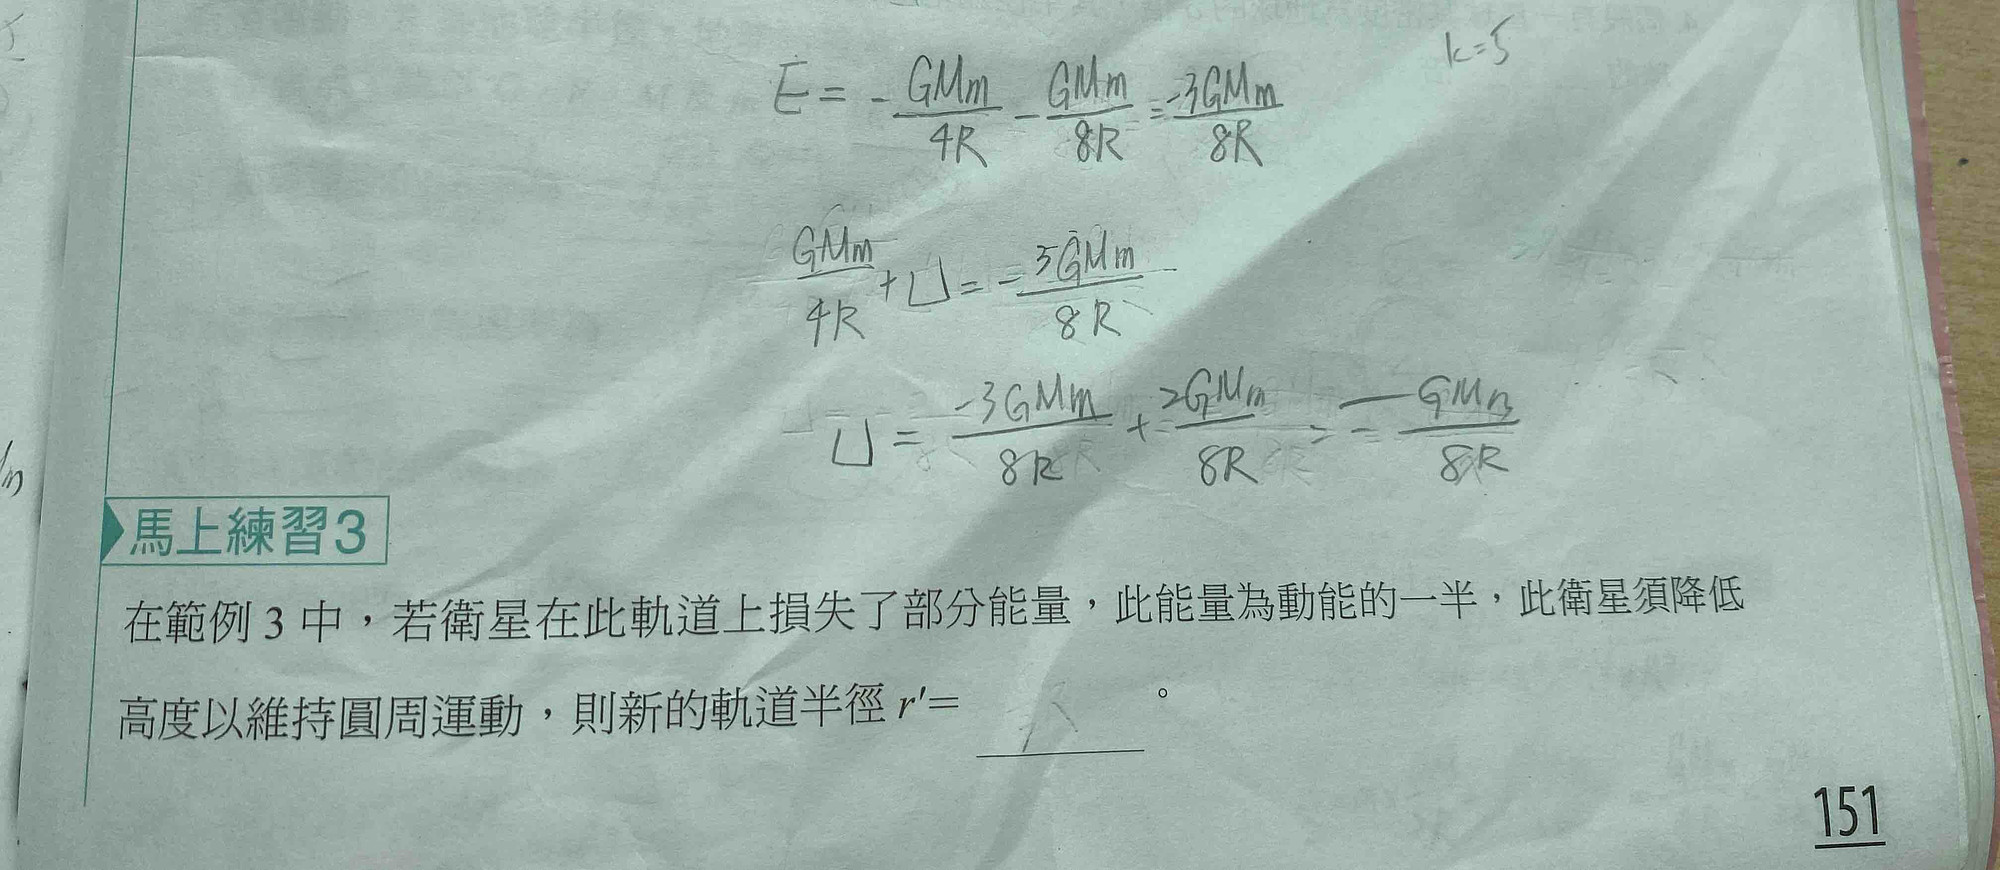 k=5
E = - GMm/4R - GMm/8R = -3GMm/8R
GMm/4R + U = - 3GMm/8R
U = -3GMm/8R + 2GMm/8R = - GMm/8R
馬上練習3
在範例 3 中，若衛星在此軌道上損失了部分能量，此能量為動能的一半，此衛星須降低
高度以維持圓周運動，則新的軌道半徑 r'= 。
151